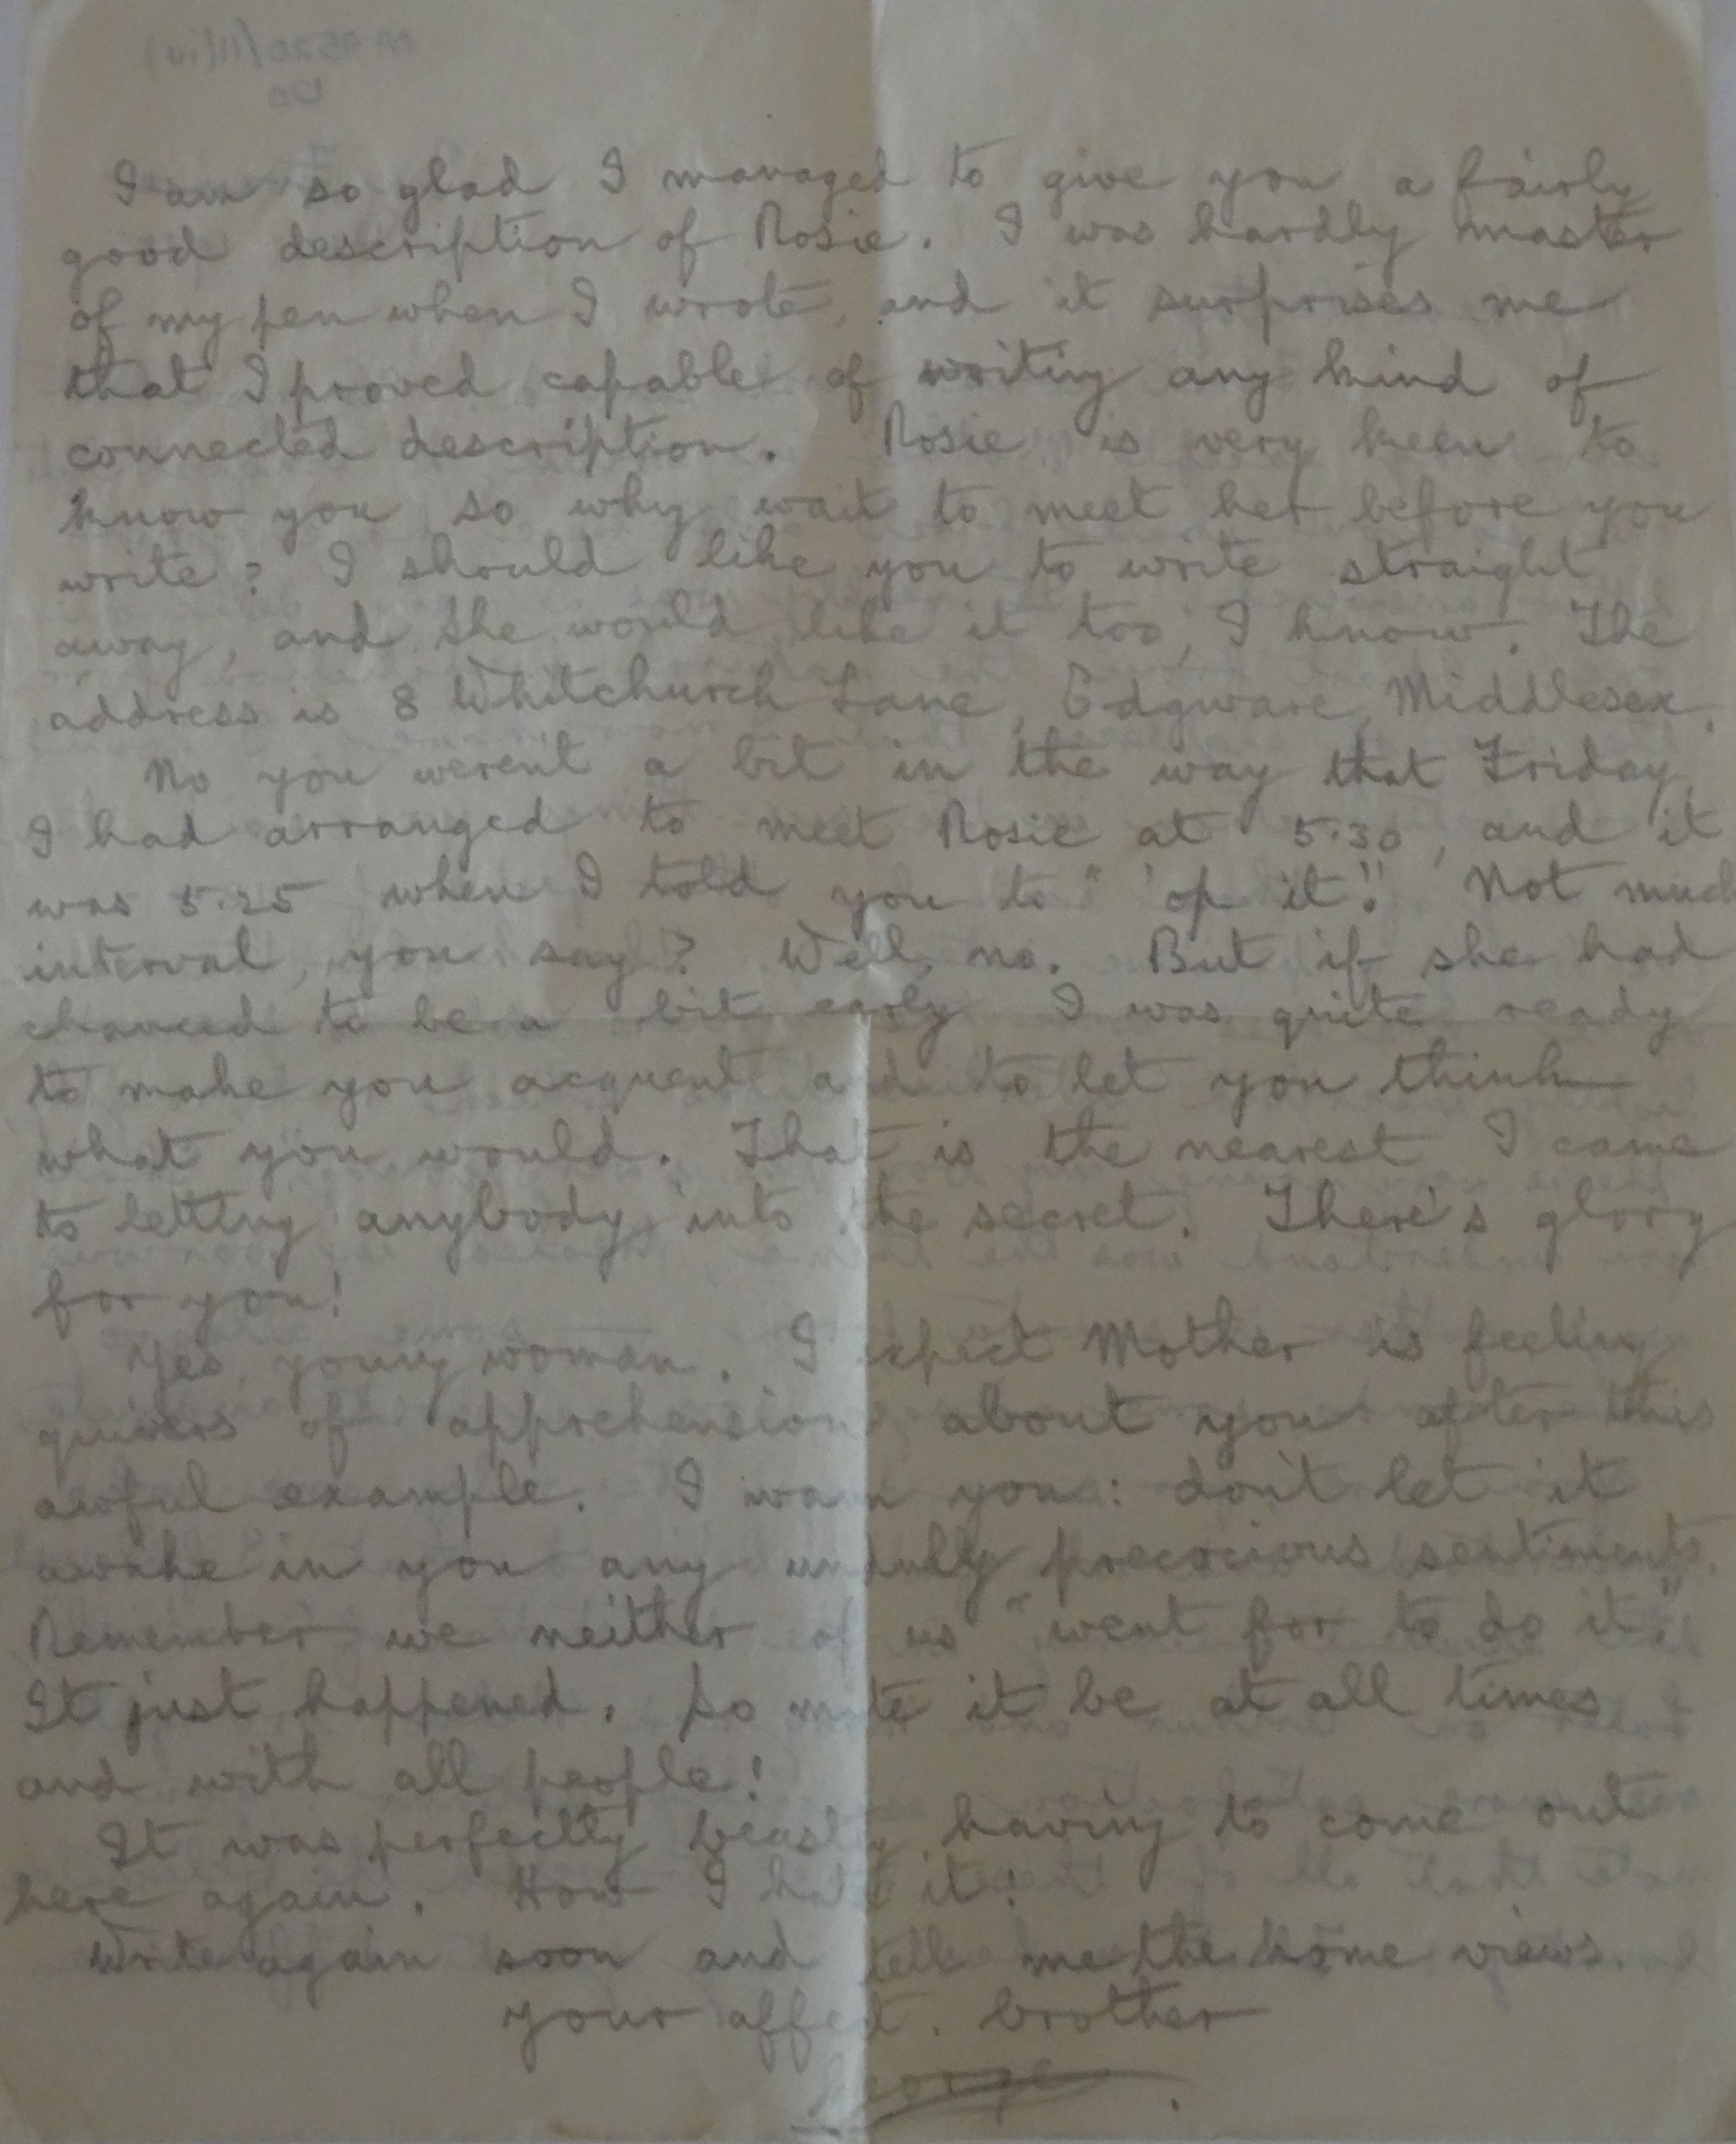 I am so glad I managed to give you a fairly
good description of Rosie. I was hardly master
of my pen when I wrote, and it surprises me
that I proved capable of writing any kind of
connected description. Rosie is very keen to
know you so why wait to meet her before you
write? I should like you to write straight
away, and she would like it too, I know. The
address is 8 Whitchurch Lane, Edgware, Middlesex.
No you weren't a bit in the way that Friday.
I had arranged to meet Rosie at 5.30, and it
was 5.25 when I told you to "'op it!" Not much
interval, you say? Well, no. But if she had
chanced to be a bit early I was quite ready
to make you acquent and to let you think
what you would. That is the nearest I came
to letting anybody into the secret. There's glory
for you!
Yes, young woman. I expect Mother is feeling
quivers of apprehension about you after this
awful example. I warn you: don't let it
awake in you any unduly precocious sentiments.
Remember we neither of us "went for to do it."
It just happened. So mote it be at all times
and with all people!
It was perfectly beastly having to come out
here again. How I hate it!
Write again soon and tell me the home views.
Your affect. brother
George.